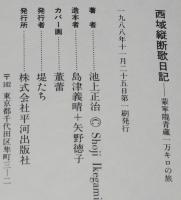 西域縦断歌日記
——蒙寧隴青蔵一万キロの旅
一九八八年十一月二十五日第一刷発行
著者——池上正治 © Shoji Ikegami
造本者——島津義晴＋矢野徳子
カバー画——董蕾
発行者——堤たち
発行所——株式会社平河出版社
〒102 東京都千代田区隼町三―二